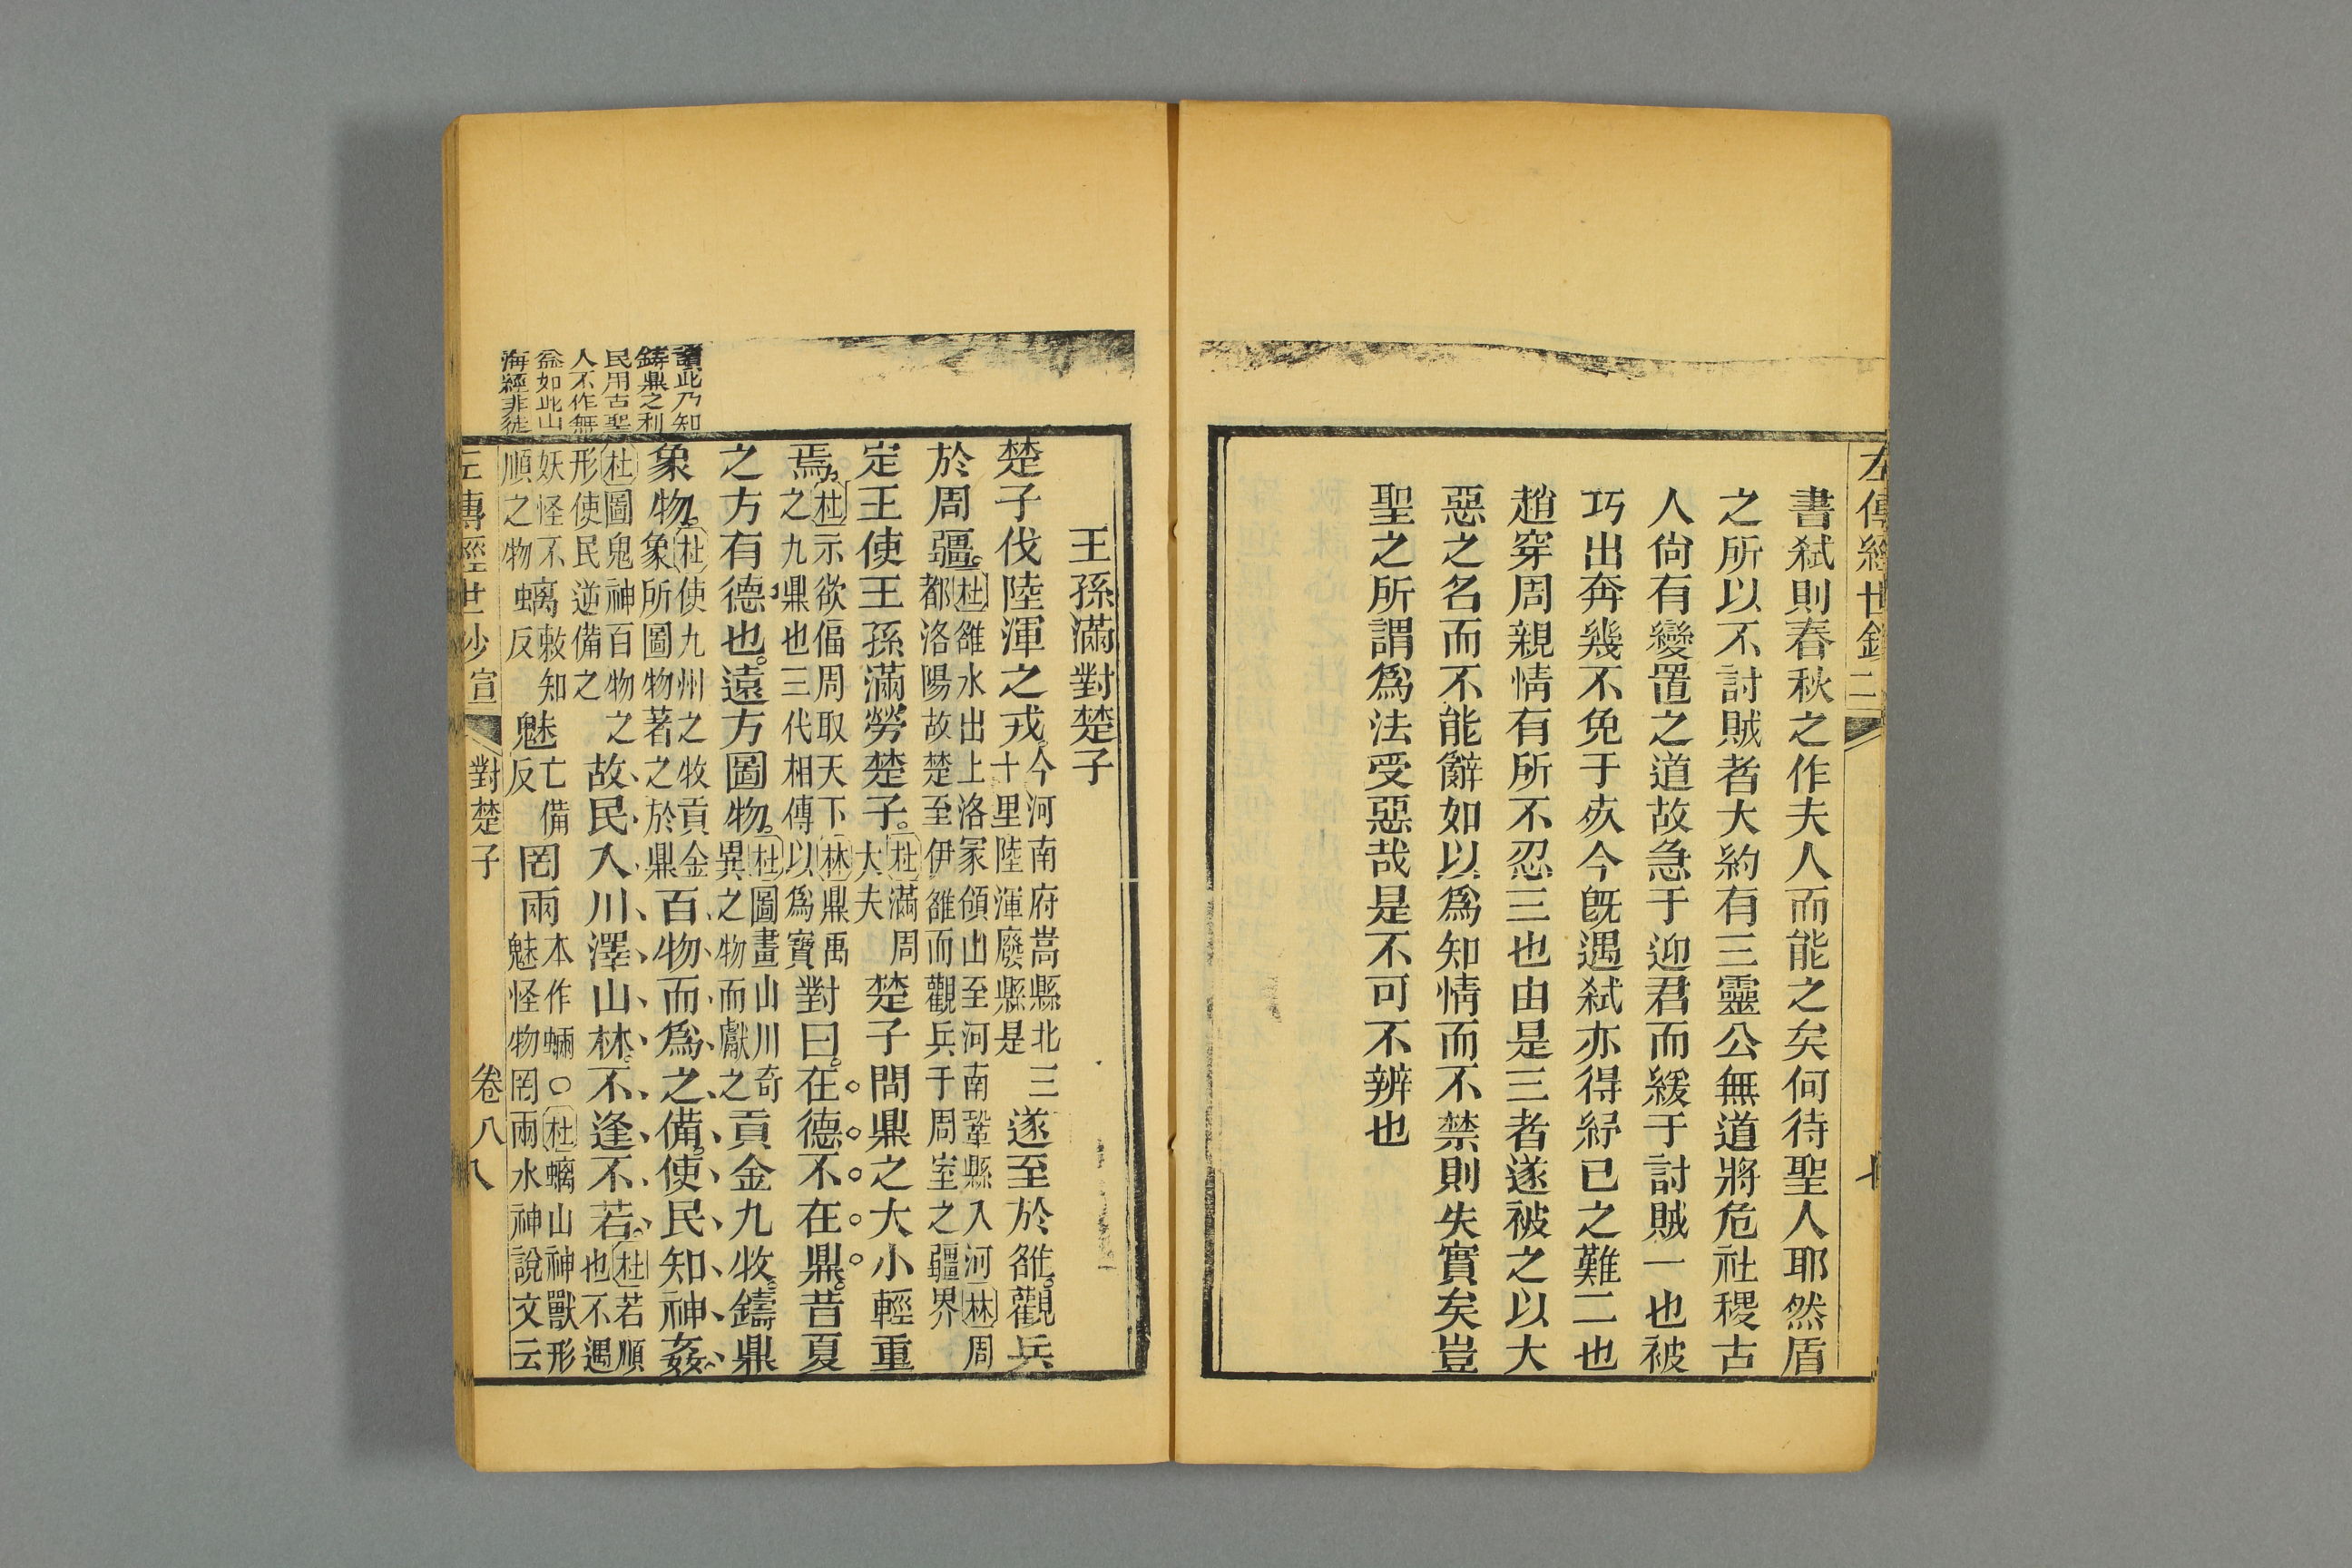 左傳經世鈔二
書弒則春秋之作夫人而能之矣何待聖人耶然盾
之所以不討賊者大約有三靈公無道將危社稷古
人尙有變置之道故急于迎君而緩于討賊一也被
巧出奔幾不免于疚今旣遇弒亦得紓已之難二也
趙穿周親情有所不忍三也由是三者遂被之以大
惡之名而不能辭如以爲知情而不禁則失實矣豈
聖之所謂爲法受惡哉是不可不辨也
王孫滿對楚子
楚子伐陸渾之戎。今河南府嵩縣北三十里陸渾廢縣是遂至於雒。觀兵
於周疆。杜雒水出上洛冢領山至河南鞏縣入河林周都洛陽故楚至伊雒而觀兵于周室之疆界
定王使王孫滿勞楚子。杜滿周大夫楚子問鼎之大小輕重
焉。杜示欲偪周取天下林鼎禹之九鼎也三代相傳以爲寶對曰。在德。不在鼎。昔夏
之方有德也。遠方圖物。杜圖畫山川奇異之物而獻之貢金九牧。鑄鼎
象物。杜使九州之牧貢金象所圖物著之於鼎百物而爲之備。使民知神姦。
杜圖鬼神百物之形使民逆備之故民入川澤山林。不逢不若。杜若順也不遇
妖怪不順之物螭敕知反魅亡備反罔兩本作蜽〇杜螭山神獸形魅怪物罔兩水神說文云
讀此乃知
鑄鼎之利
民用古聖
人不作無
益如此山
海經非徒
左傳經世鈔 宣 對楚子 卷八 八